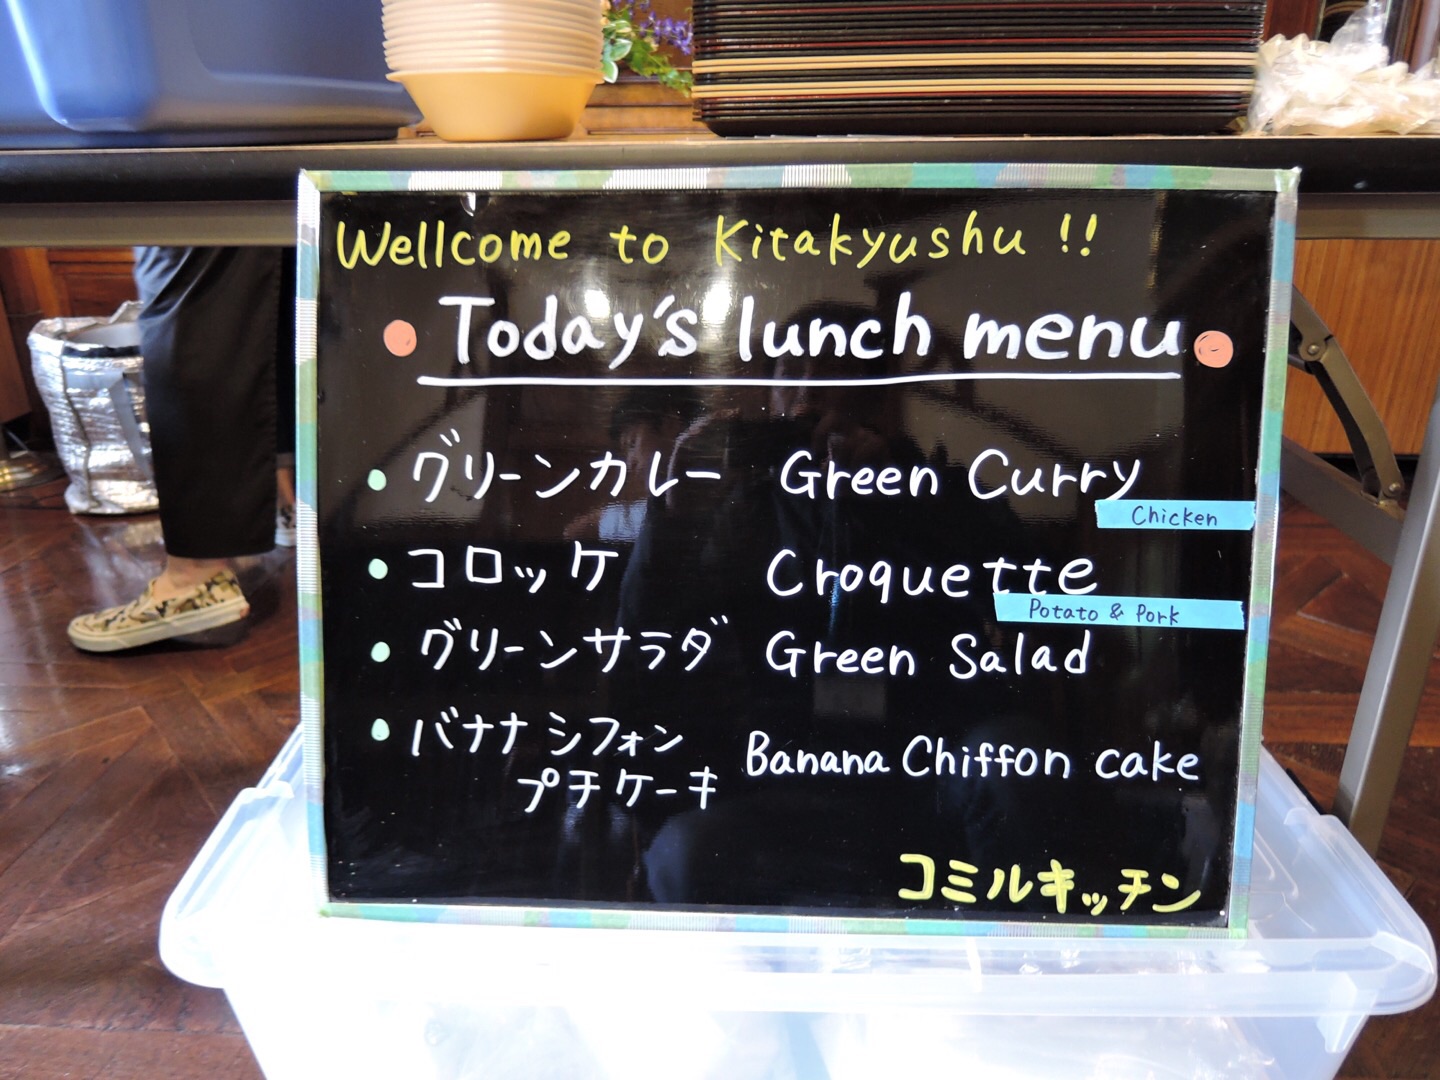 Wellcome to Kitakyushu !!
Today's lunch menu
グリーンカレー Green Curry
Chicken
コロッケ Croquette
Potato & Pork
グリーンサラダ Green Salad
バナナシフォン
プチケーキ Banana Chiffon cake
コミルキッチン